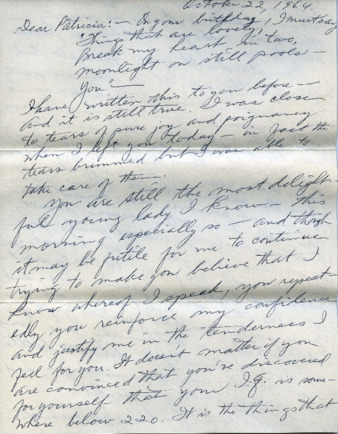 October 22, 1964.
Dear Patricia:— On your birthday, I must say
"Things that are lovely
Break my heart in two,
Moonlight on still pools—
You"—
I have written this to you before—
and it is still true. I was close
to tears of pure joy and poignancy
when I left you today— in fact the
tears brimmed but I was able to
take care of them.
You are still the most delight-
ful young lady I know— this
morning especially so— and though
it may be futile for me to continue
trying to make you believe that I
know whereof I speak, you repeat-
edly you reinforce my confidence
and justify me in the tenderness I
feel for you. It doesn't matter if you
are convinced that you've discovered
for yourself that your I.Q. is some-
where below 220. It is the things that